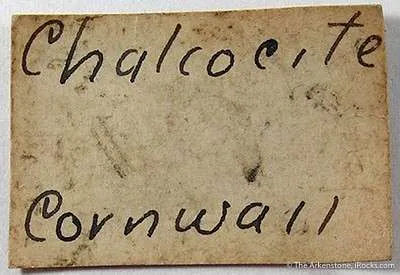 Chalcocite
Cornwall
© The Arkenstone, iRocks.com